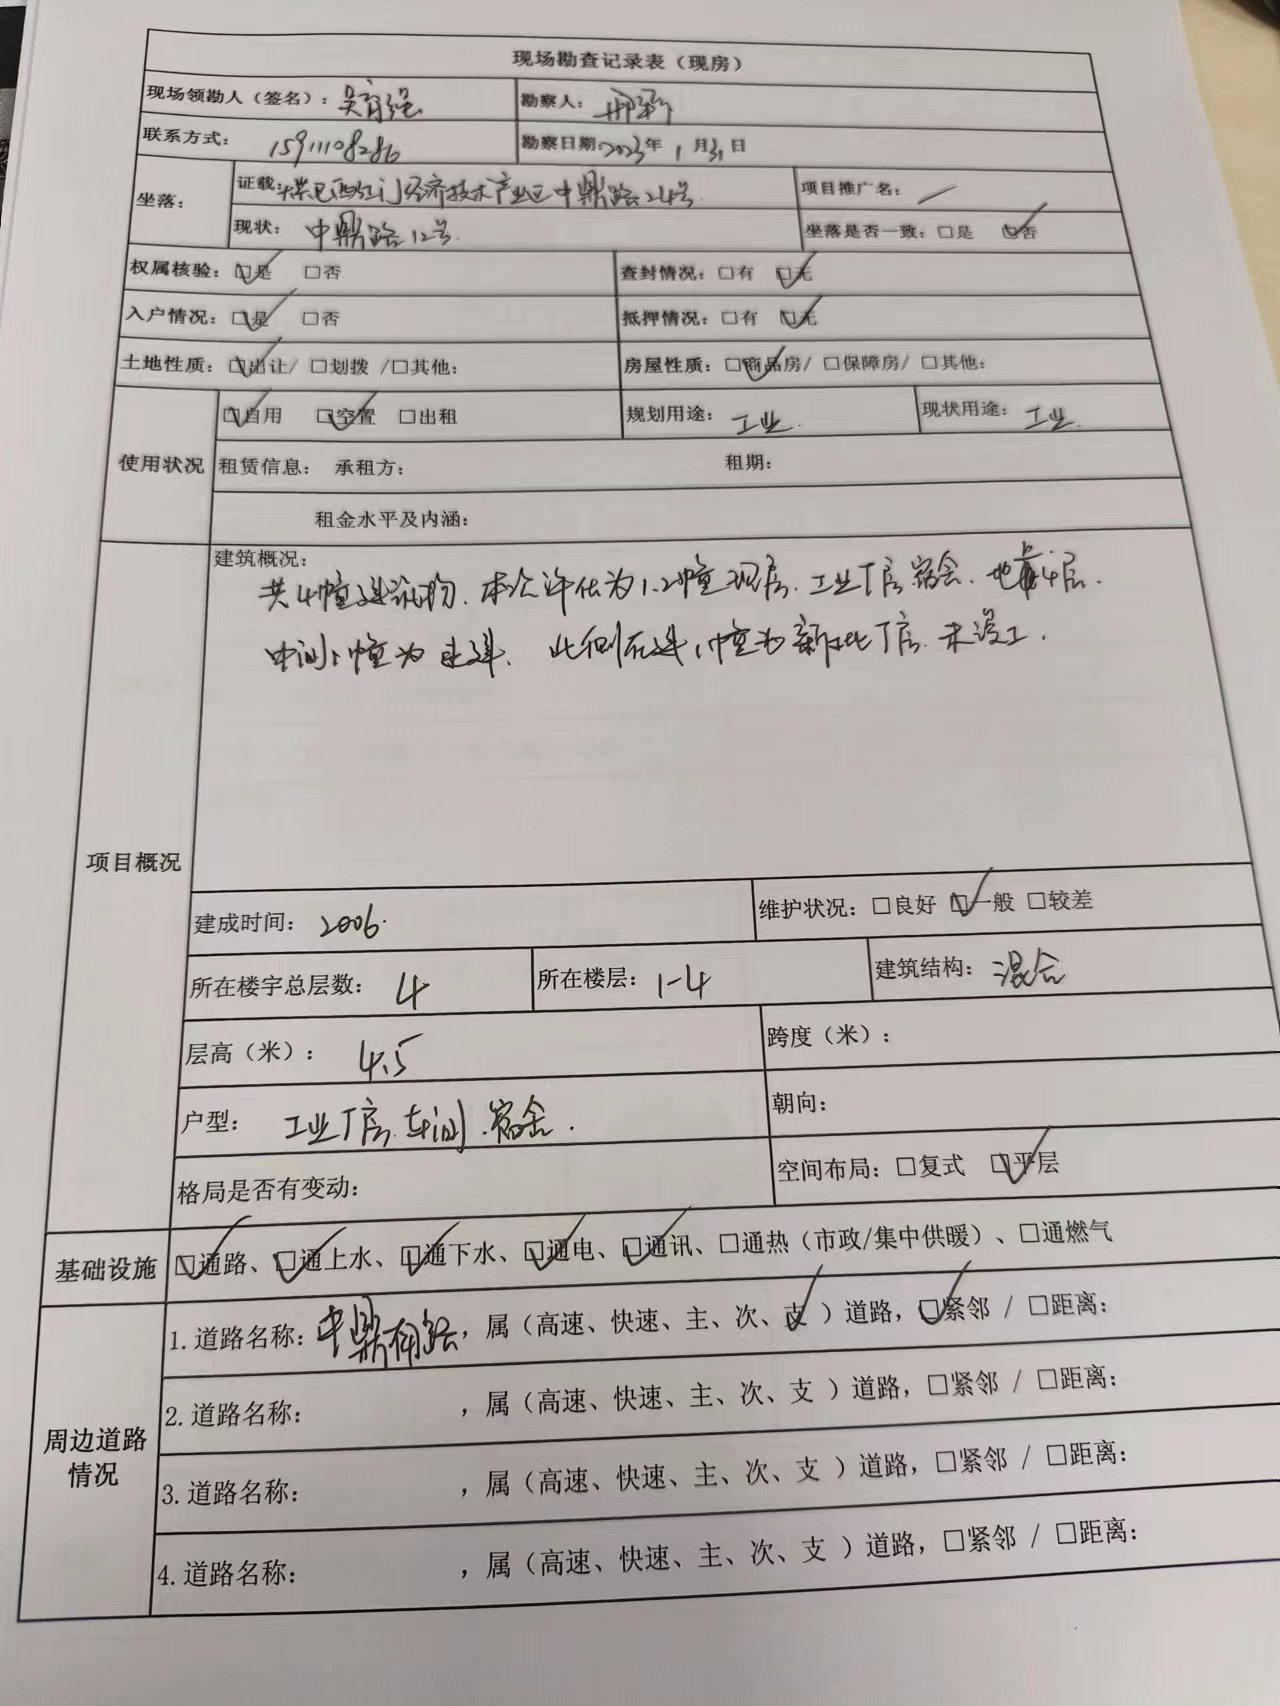 现场勘查记录表（现房）
现场领勘人（签名）：吴育强 勘察人：邢彩
联系方式：15911108286 勘察日期：2023年1月31日
坐落：
证载：大兴区西红门经济技术产业区中鼎路24号 项目推广名：/
现状：中鼎路12号. 坐落是否一致：□是 ☑否
权属核验：☑是 □否 查封情况：□有 ☑无
入户情况：☑是 □否 抵押情况：□有 ☑无
土地性质：☑出让/ □划拨 /□其他： 房屋性质：☑商品房/ □保障房/ □其他：
使用状况
☑自用 ☑空置 □出租 规划用途：工业. 现状用途：工业.
租赁信息： 承租方： 租期：
租金水平及内涵：
项目概况
建筑概况：
共4幢建筑物、本次评估为1.2幢现房、工业厂房、宿舍、地上4层.
中间1幢为自建、北侧在建1幢为新批厂房、未竣工.
建成时间：2006. 维护状况：□良好 ☑一般 □较差
所在楼宇总层数：4 所在楼层：1-4 建筑结构：混合
层高（米）：4.5 跨度（米）：
户型：工业厂房、车间、宿舍. 朝向：
格局是否有变动： 空间布局：□复式 ☑平层
基础设施 ☑通路、☑通上水、☑通下水、☑通电、☑通讯、□通热（市政/集中供暖）、□通燃气
周边道路情况
1.道路名称：中鼎南路，属（高速、快速、主、次、支✓）道路，☑紧邻 / □距离：
2.道路名称： ，属（高速、快速、主、次、支 ）道路，□紧邻 / □距离：
3.道路名称： ，属（高速、快速、主、次、支 ）道路，□紧邻 / □距离：
4.道路名称： ，属（高速、快速、主、次、支 ）道路，□紧邻 / □距离：